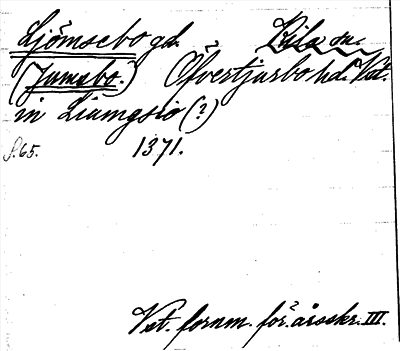 Ljömsebo gd. Lila sn.
(Jumsbo.) Öfvertjurbo hd. Vst.
in Liumgsio (?)
S. 65. 1371.
Vst. fornm. för. årsskr. III.